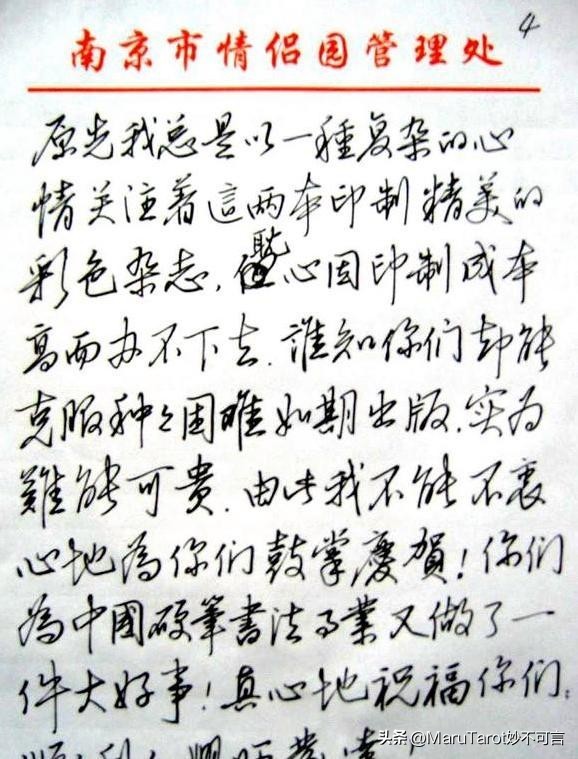 4
南京市情侣园管理处
原先我总是以一種复杂的心
情关注着這两本印制精美的
彩色杂志,耽心因印制成本
高而办不下去.誰知你们却能
克服种々困难如期出版.实为
難能可貴.由此我不能不衷
心地為你们鼓掌慶賀!你们
為中國硬筆書法事業又做了一
件大好事!真心地祝福你们:
头条 @MaruTarot妙不可言